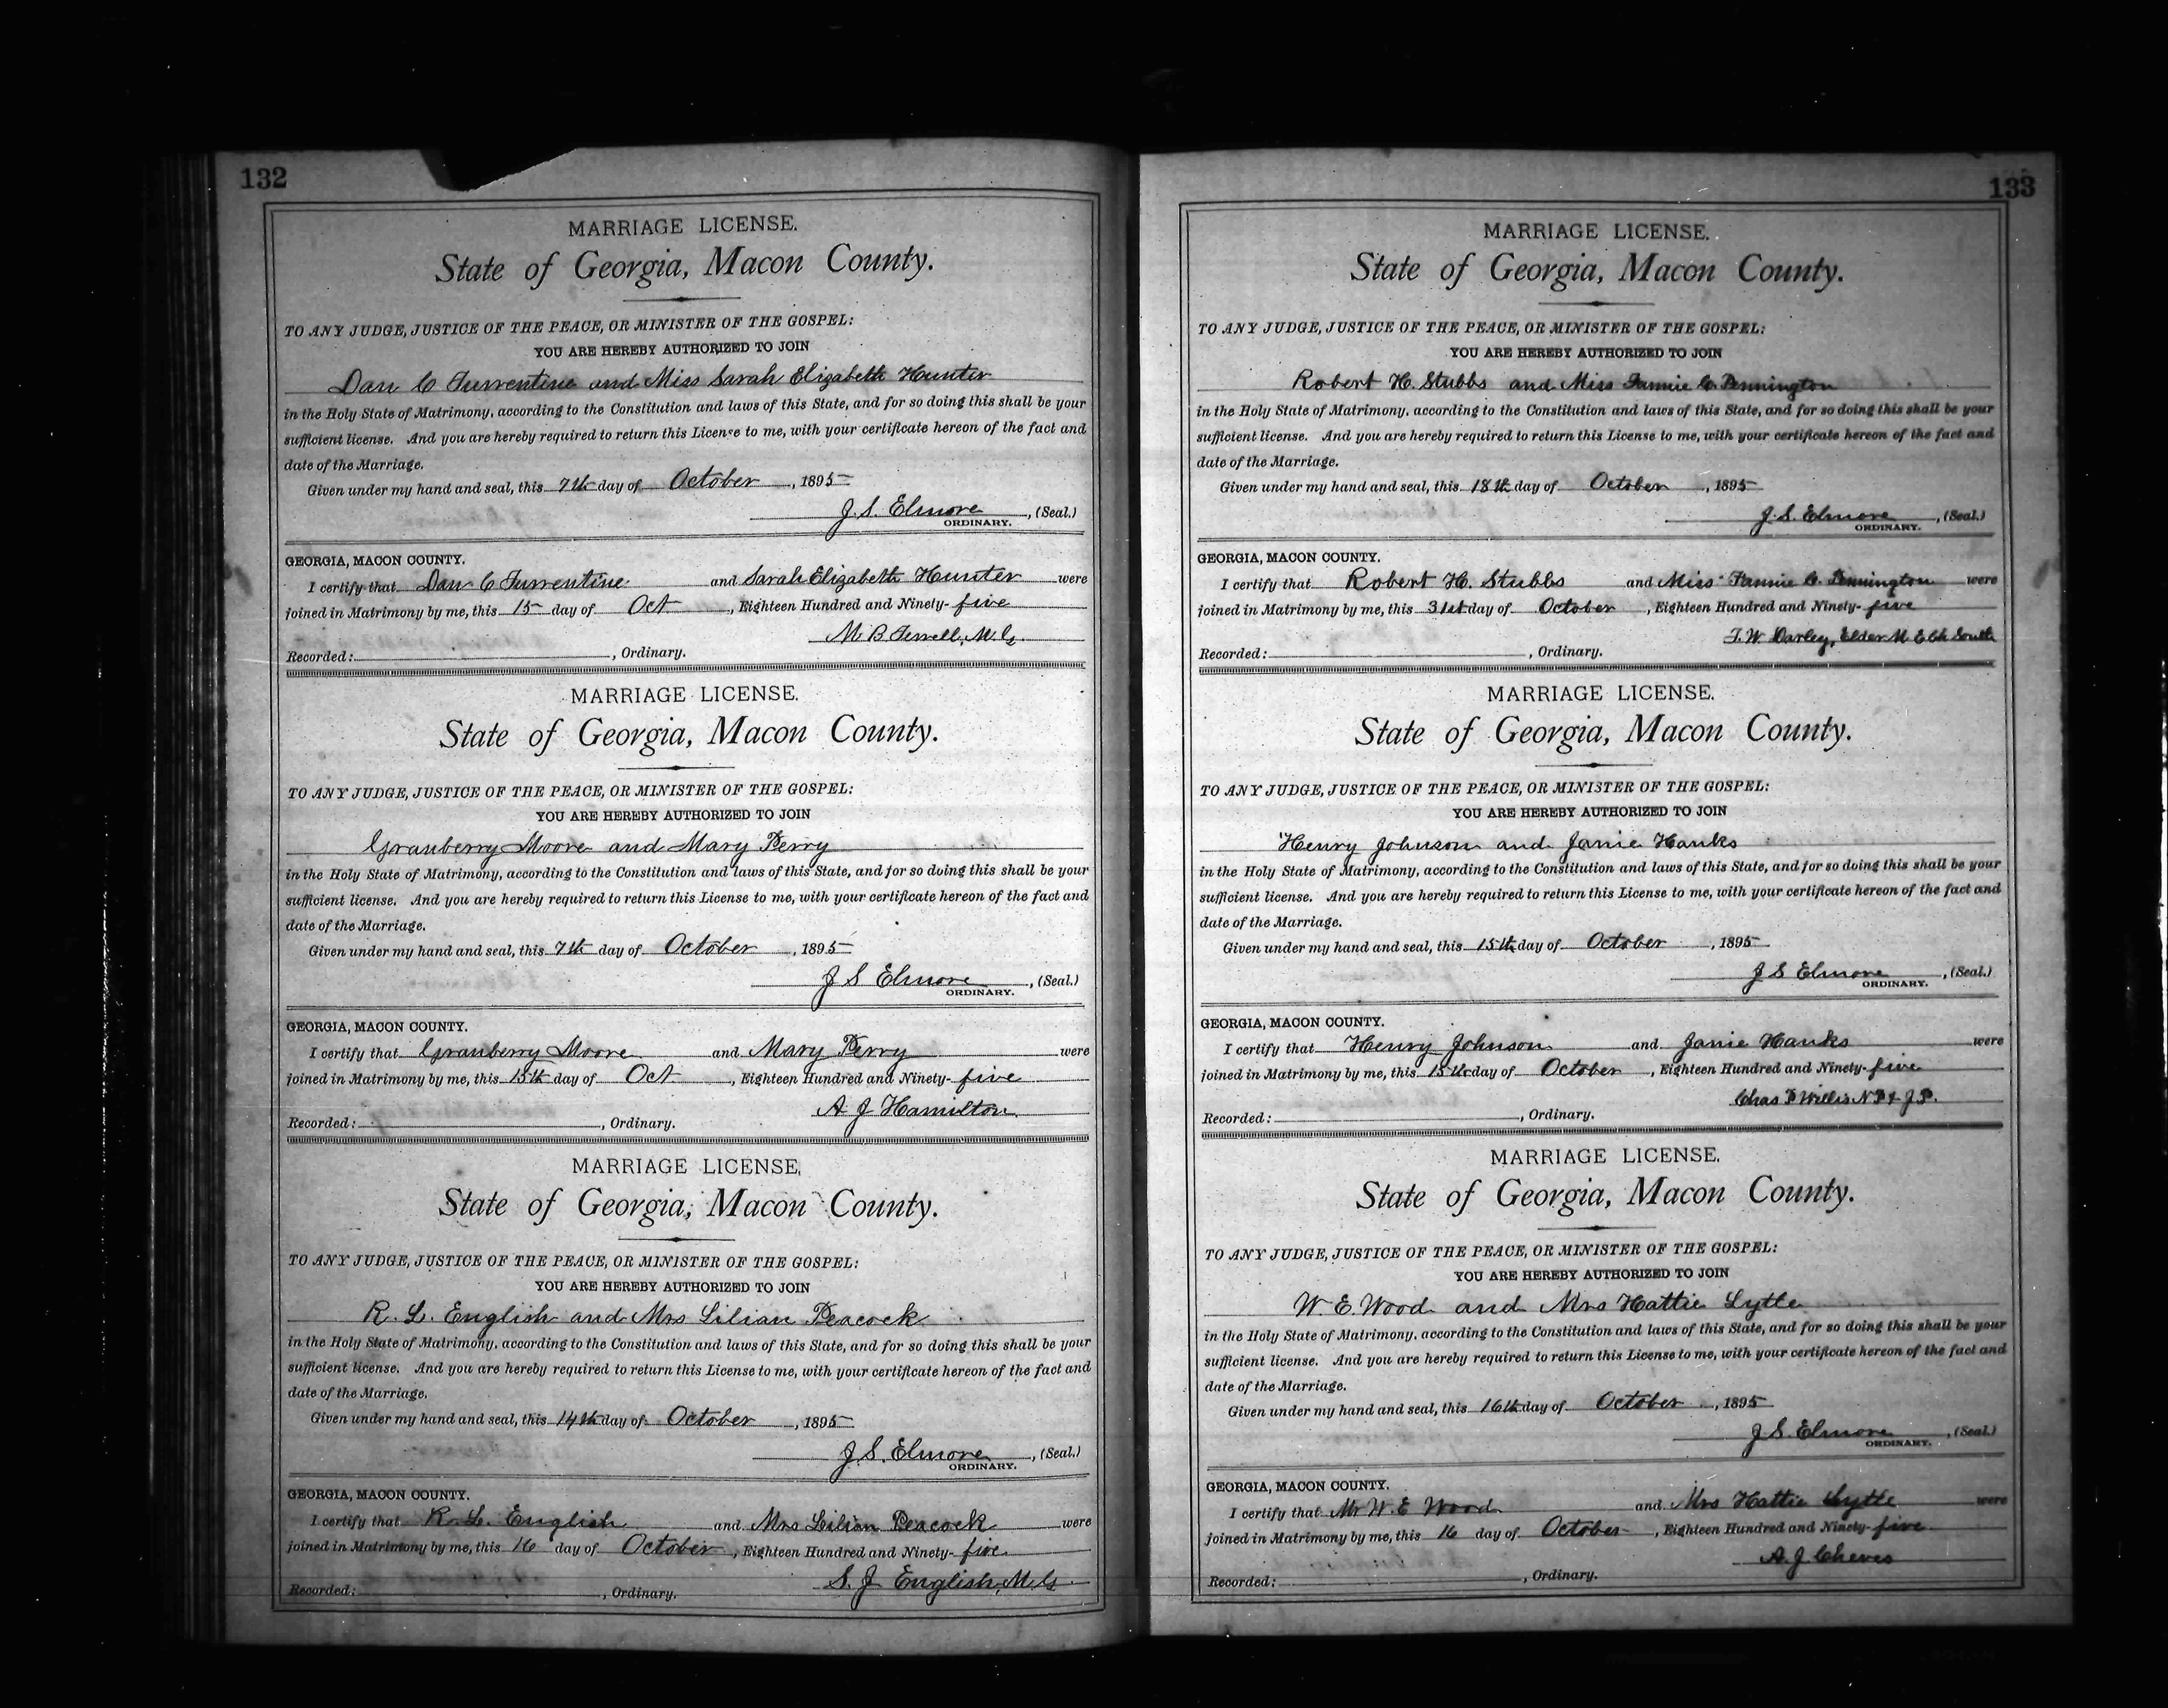 132
MARRIAGE LICENSE.
State of Georgia, Macon County.
TO ANY JUDGE, JUSTICE OF THE PEACE, OR MINISTER OF THE GOSPEL:
YOU ARE HEREBY AUTHORIZED TO JOIN
Dan C Turrentine and Miss Sarah Elizabeth Hunter
in the Holy State of Matrimony, according to the Constitution and laws of this State, and for so doing this shall be your
sufficient license. And you are hereby required to return this License to me, with your certificate hereon of the fact and
date of the Marriage.
Given under my hand and seal, this 7th day of October, 1895
J. S. Elmore, (Seal.)
ORDINARY.
GEORGIA, MACON COUNTY.
I certify that Dan C Turrentine and Sarah Elizabeth Hunter were
joined in Matrimony by me, this 15 day of Oct, Eighteen Hundred and Ninety-five
M B Ferrell, M. G.
Recorded: , Ordinary.
MARRIAGE LICENSE.
State of Georgia, Macon County.
TO ANY JUDGE, JUSTICE OF THE PEACE, OR MINISTER OF THE GOSPEL:
YOU ARE HEREBY AUTHORIZED TO JOIN
Granberry Moore and Mary Perry
in the Holy State of Matrimony, according to the Constitution and laws of this State, and for so doing this shall be your
sufficient license. And you are hereby required to return this License to me, with your certificate hereon of the fact and
date of the Marriage.
Given under my hand and seal, this 7th day of October, 1895
J S Elmore, (Seal.)
ORDINARY.
GEORGIA, MACON COUNTY.
I certify that Granberry Moore and Mary Perry were
joined in Matrimony by me, this 15th day of Oct, Eighteen Hundred and Ninety-five
A J Hamilton
Recorded: , Ordinary.
MARRIAGE LICENSE.
State of Georgia, Macon County.
TO ANY JUDGE, JUSTICE OF THE PEACE, OR MINISTER OF THE GOSPEL:
YOU ARE HEREBY AUTHORIZED TO JOIN
R. L. English and Mrs Lilian Peacock
in the Holy State of Matrimony, according to the Constitution and laws of this State, and for so doing this shall be your
sufficient license. And you are hereby required to return this License to me, with your certificate hereon of the fact and
date of the Marriage.
Given under my hand and seal, this 14th day of October, 1895
J. S. Elmore, (Seal.)
ORDINARY.
GEORGIA, MACON COUNTY.
I certify that R. L. English and Mrs Lilian Peacock were
joined in Matrimony by me, this 16 day of October, Eighteen Hundred and Ninety-five
S. J English, M. G
Recorded: , Ordinary.
133
MARRIAGE LICENSE.
State of Georgia, Macon County.
TO ANY JUDGE, JUSTICE OF THE PEACE, OR MINISTER OF THE GOSPEL:
YOU ARE HEREBY AUTHORIZED TO JOIN
Robert H. Stubbs and Miss Fannie C. Pennington
in the Holy State of Matrimony, according to the Constitution and laws of this State, and for so doing this shall be your
sufficient license. And you are hereby required to return this License to me, with your certificate hereon of the fact and
date of the Marriage.
Given under my hand and seal, this 18th day of October, 1895
J. S. Elmore, (Seal.)
ORDINARY.
GEORGIA, MACON COUNTY.
I certify that Robert H. Stubbs and Miss Fannie C. Pennington were
joined in Matrimony by me, this 31st day of October, Eighteen Hundred and Ninety-five
T. W. Darley, Elder M E Ch South
Recorded: , Ordinary.
MARRIAGE LICENSE.
State of Georgia, Macon County.
TO ANY JUDGE, JUSTICE OF THE PEACE, OR MINISTER OF THE GOSPEL:
YOU ARE HEREBY AUTHORIZED TO JOIN
Henry Johnson and Janie Hanks
in the Holy State of Matrimony, according to the Constitution and laws of this State, and for so doing this shall be your
sufficient license. And you are hereby required to return this License to me, with your certificate hereon of the fact and
date of the Marriage.
Given under my hand and seal, this 15th day of October, 1895
J S Elmore, (Seal.)
ORDINARY.
GEORGIA, MACON COUNTY.
I certify that Henry Johnson and Janie Hanks were
joined in Matrimony by me, this 15th day of October, Eighteen Hundred and Ninety-five
Chas P Willis N P & J P.
Recorded: , Ordinary.
MARRIAGE LICENSE.
State of Georgia, Macon County.
TO ANY JUDGE, JUSTICE OF THE PEACE, OR MINISTER OF THE GOSPEL:
YOU ARE HEREBY AUTHORIZED TO JOIN
W. E. Wood and Mrs Hattie Lytle
in the Holy State of Matrimony, according to the Constitution and laws of this State, and for so doing this shall be your
sufficient license. And you are hereby required to return this License to me, with your certificate hereon of the fact and
date of the Marriage.
Given under my hand and seal, this 16th day of October, 1895
J S Elmore, (Seal.)
ORDINARY.
GEORGIA, MACON COUNTY.
I certify that Mr W. E Wood and Mrs Hattie Lytle were
joined in Matrimony by me, this 16 day of October, Eighteen Hundred and Ninety-five
A. J Cheves
Recorded: , Ordinary.